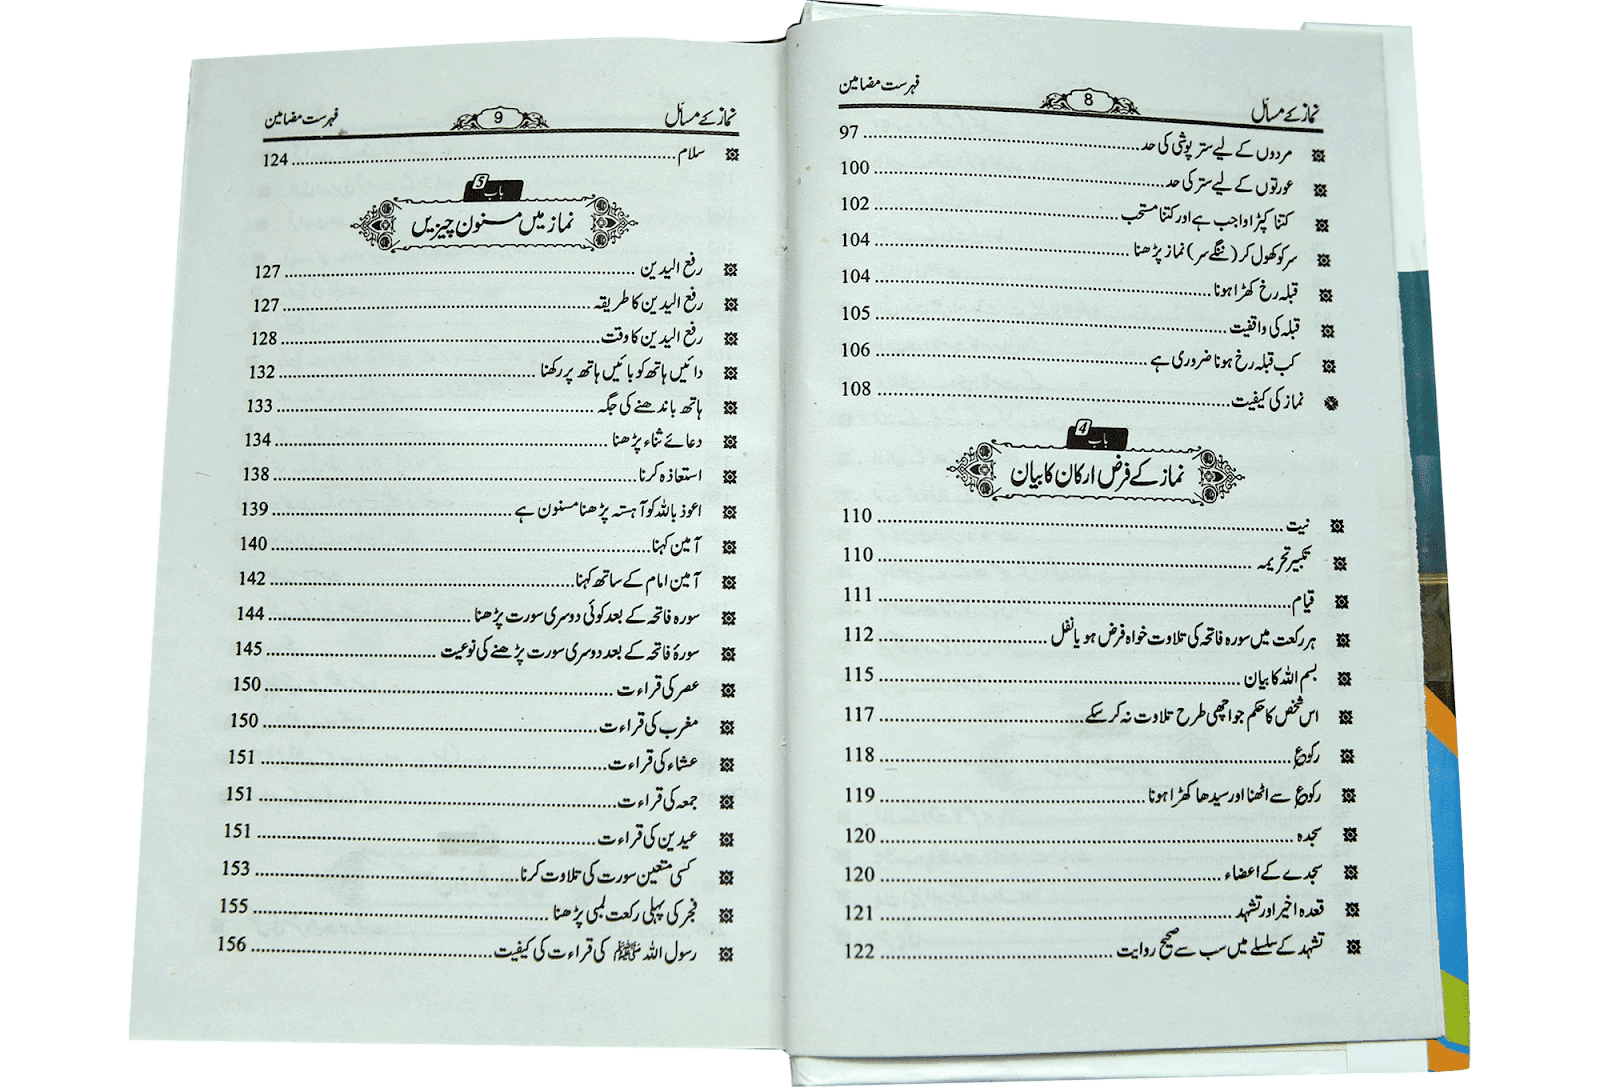 نماز کے مسائل 8 فہرست مضامین
مردوں کے لیے ستر پوشی کی حد 97
عورتوں کے لیے ستر کی حد 100
کتنا کپڑا واجب ہے اور کتنا مستحب 102
سر کو کھول کر (ننگے سر) نماز پڑھنا 104
قبلہ رخ کھڑا ہونا 104
قبلہ کی واقفیت 105
کب قبلہ رخ ہونا ضروری ہے 106
نماز کی کیفیت 108
باب 4
نماز کے فرض ارکان کا بیان
نیت 110
تکبیر تحریمہ 110
قیام 111
ہر رکعت میں سورہ فاتحہ کی تلاوت خواہ فرض ہو یا نفل 112
بسم اللہ کا بیان 115
اس شخص کا حکم جو اچھی طرح تلاوت نہ کر سکے 117
رکوع 118
رکوع سے اٹھنا اور سیدھا کھڑا ہونا 119
سجدہ 120
سجدے کے اعضاء 120
قعدہ اخیر اور تشہد 121
تشہد کے سلسلے میں سب سے صحیح روایت 122
نماز کے مسائل 9 فہرست مضامین
سلام 124
باب 5
نماز میں مسنون چیزیں
رفع الیدین 127
رفع الیدین کا طریقہ 127
رفع الیدین کا وقت 128
دائیں ہاتھ کو بائیں ہاتھ پر رکھنا 132
ہاتھ باندھنے کی جگہ 133
دعائے ثناء پڑھنا 134
استعاذہ کرنا 138
اعوذ باللہ کو آہستہ پڑھنا مسنون ہے 139
آمین کہنا 140
آمین امام کے ساتھ کہنا 142
سورہ فاتحہ کے بعد کوئی دوسری سورت پڑھنا 144
سورۂ فاتحہ کے بعد دوسری سورت پڑھنے کی نوعیت 145
عصر کی قراءت 150
مغرب کی قراءت 150
عشاء کی قراءت 151
جمعہ کی قراءت 151
عیدین کی قراءت 151
کسی متعین سورت کی تلاوت کرنا 153
فجر کی پہلی رکعت لمبی پڑھنا 155
رسول اللہ ﷺ کی قراءت کی کیفیت 156